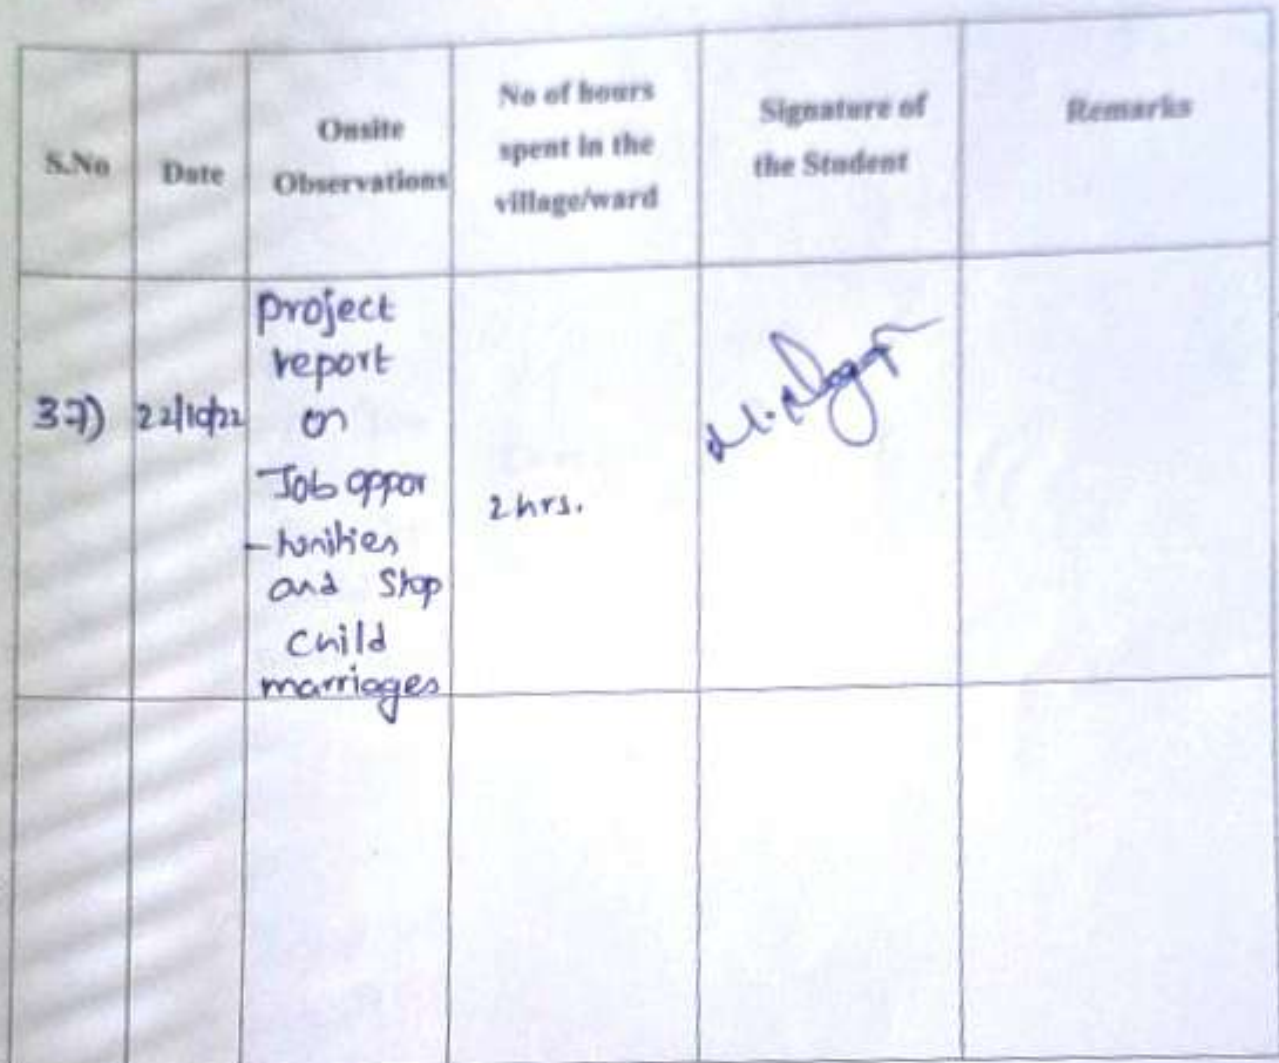 S.No
Date
Onsite
Observations
No of hours
spent in the
village/ward
Signature of
the Student
Remarks
37)
22/10/22
project
report
on
Job oppor
-tunities
and Stop
Child
marriages
2 hrs.